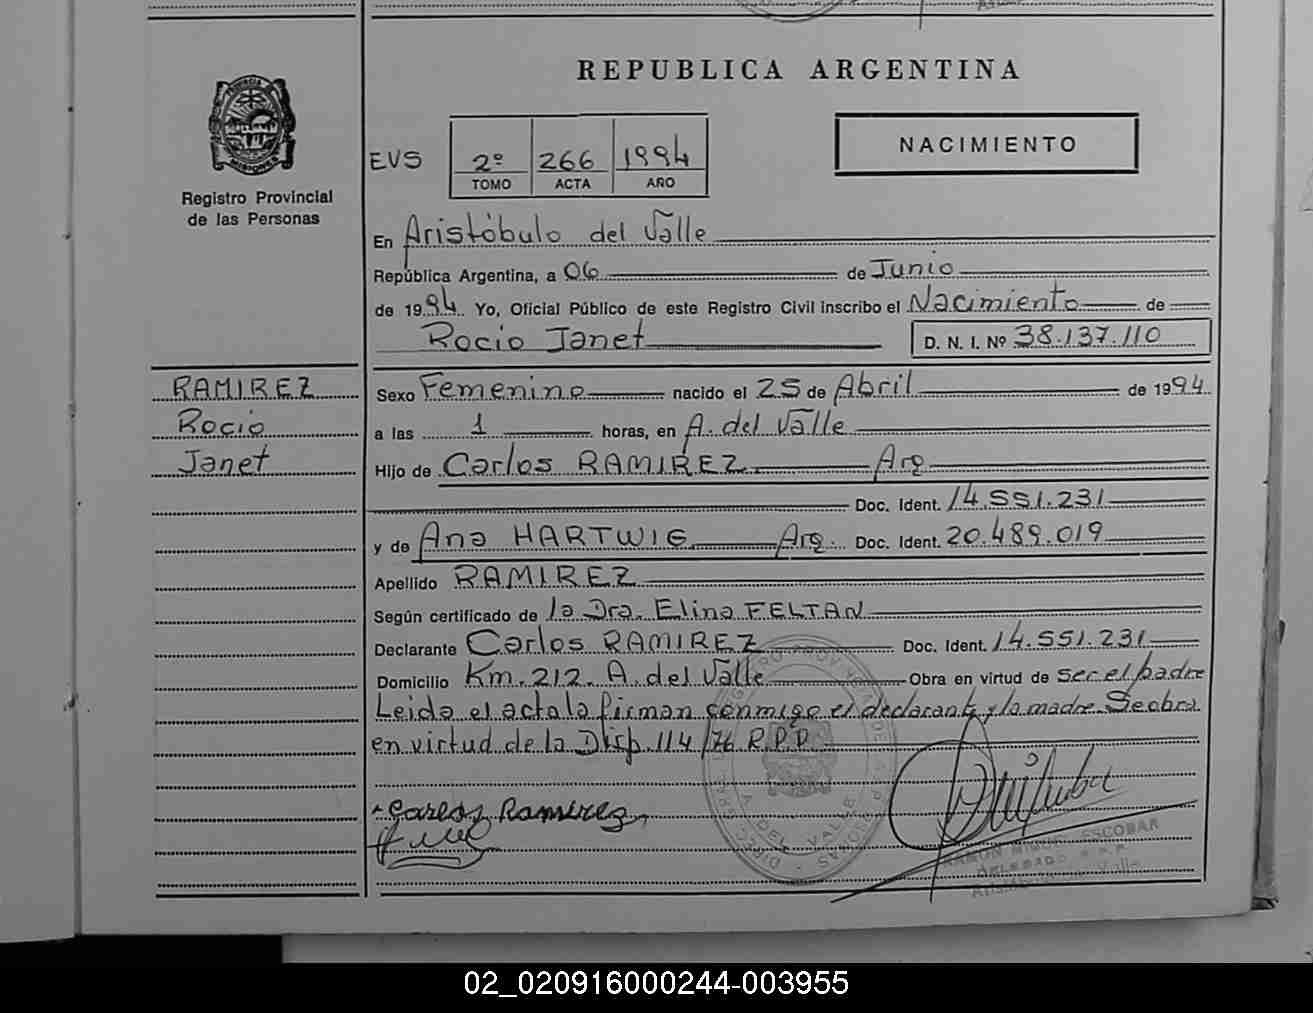 REPUBLICA ARGENTINA
PROVINCIA
MISIONES
Registro Provincial
de las Personas
EVS 2º 266 1994
TOMO ACTA AÑO
NACIMIENTO
En Aristóbulo del Valle
República Argentina, a 06 de Junio
de 1994 Yo, Oficial Público de este Registro Civil inscribo el Nacimiento de
Rocio Janet D. N. I. Nº 38.137.110
RAMIREZ
Rocio
Janet
Sexo Femenino nacido el 25 de Abril de 1994
a las 1 horas, en A. del Valle
Hijo de Carlos RAMIREZ Arg
Doc. Ident. 14.551.231
y de Ana HARTWIG Arg. Doc. Ident. 20.489.019
Apellido RAMIREZ
Según certificado de la Dra. Elina FELTAN
Declarante Carlos RAMIREZ Doc. Ident. 14.551.231
Domicilio Km. 212. A. del Valle Obra en virtud de ser el padre
Leida el acta la firman conmigo el declarante y la madre. Se obra
en virtud de la Disp. 114/76 R.P.P.
Carlos Ramirez
A. DEL VALLE
RAMON MIGUEL ESCOBAR
02_020916000244-003955